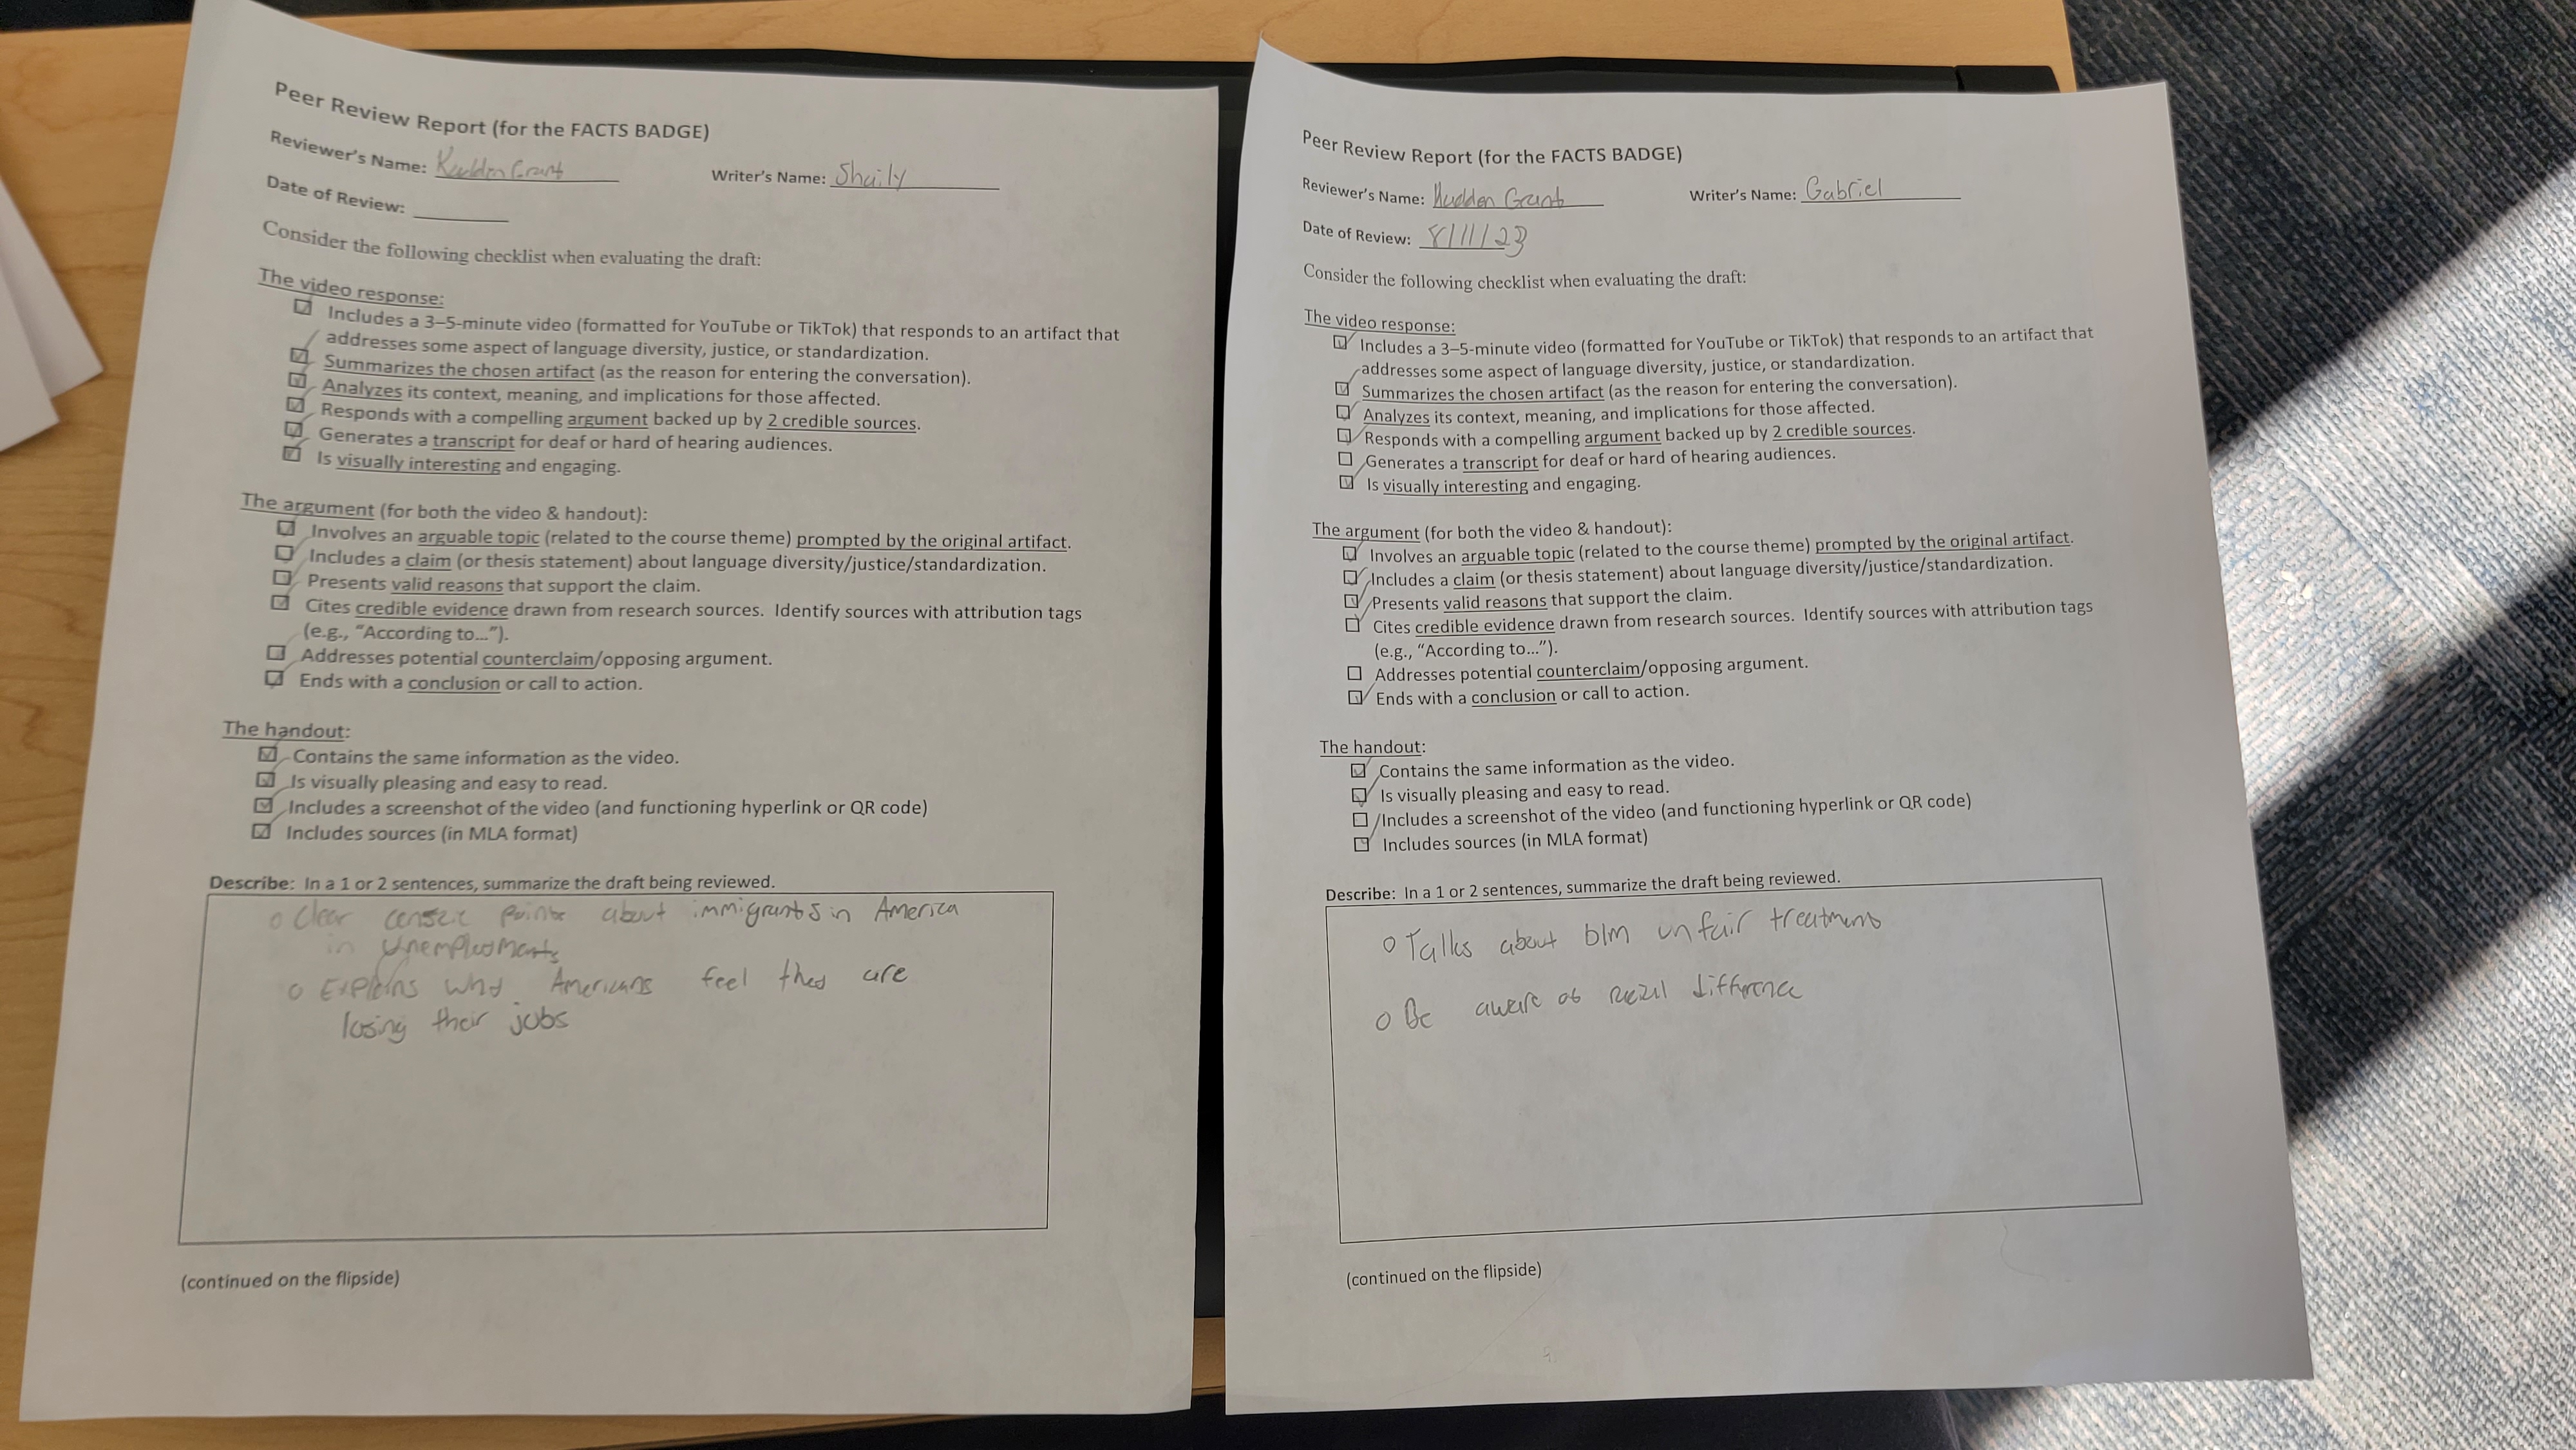 Peer Review Report (for the FACTS BADGE)
Reviewer's Name: Writer's Name: Shaily
Date of Review:
Consider the following checklist when evaluating the draft:
The video response:
☑ Includes a 3–5-minute video (formatted for YouTube or TikTok) that responds to an artifact that
addresses some aspect of language diversity, justice, or standardization.
☑ Summarizes the chosen artifact (as the reason for entering the conversation).
☑ Analyzes its context, meaning, and implications for those affected.
☑ Responds with a compelling argument backed up by 2 credible sources.
☑ Generates a transcript for deaf or hard of hearing audiences.
☑ Is visually interesting and engaging.
The argument (for both the video & handout):
☑ Involves an arguable topic (related to the course theme) prompted by the original artifact.
☑ Includes a claim (or thesis statement) about language diversity/justice/standardization.
☑ Presents valid reasons that support the claim.
☑ Cites credible evidence drawn from research sources. Identify sources with attribution tags
(e.g., "According to…").
☐ Addresses potential counterclaim/opposing argument.
☑ Ends with a conclusion or call to action.
The handout:
☑ Contains the same information as the video.
☑ Is visually pleasing and easy to read.
☑ Includes a screenshot of the video (and functioning hyperlink or QR code)
☑ Includes sources (in MLA format)
Describe: In a 1 or 2 sentences, summarize the draft being reviewed.
o Clear points about immigrants in America
in
o Explains why Americans feel they are
losing their jobs
(continued on the flipside)
Peer Review Report (for the FACTS BADGE)
Reviewer's Name: Writer's Name: Gabriel
Date of Review:
Consider the following checklist when evaluating the draft:
The video response:
☑ Includes a 3–5-minute video (formatted for YouTube or TikTok) that responds to an artifact that
addresses some aspect of language diversity, justice, or standardization.
☑ Summarizes the chosen artifact (as the reason for entering the conversation).
☑ Analyzes its context, meaning, and implications for those affected.
☑ Responds with a compelling argument backed up by 2 credible sources.
☐ Generates a transcript for deaf or hard of hearing audiences.
☑ Is visually interesting and engaging.
The argument (for both the video & handout):
☑ Involves an arguable topic (related to the course theme) prompted by the original artifact.
☑ Includes a claim (or thesis statement) about language diversity/justice/standardization.
☑ Presents valid reasons that support the claim.
☑ Cites credible evidence drawn from research sources. Identify sources with attribution tags
(e.g., "According to…").
☐ Addresses potential counterclaim/opposing argument.
☑ Ends with a conclusion or call to action.
The handout:
☑ Contains the same information as the video.
☑ Is visually pleasing and easy to read.
☐ Includes a screenshot of the video (and functioning hyperlink or QR code)
☑ Includes sources (in MLA format)
Describe: In a 1 or 2 sentences, summarize the draft being reviewed.
o Talks about blm unfair treatment
o Be aware of difference
(continued on the flipside)